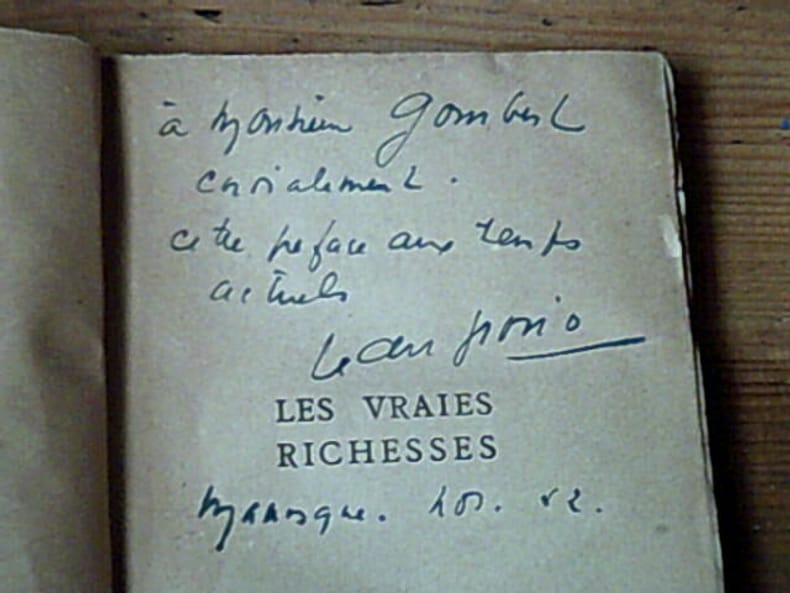 à Monsieur Gombert
cordialement.
cette préface aux temps
actuels
Jean Giono
LES VRAIES
RICHESSES
Manosque. nov. 42.